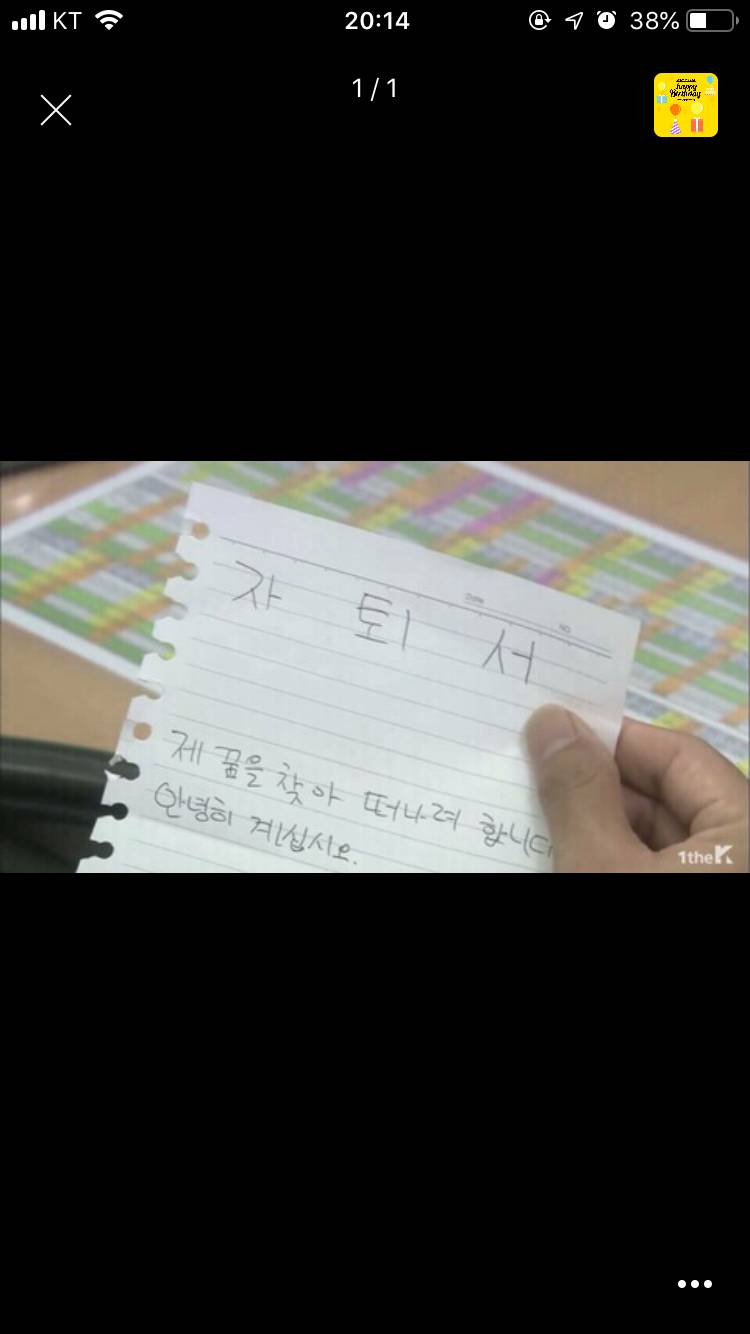 KT
20:14
38%
1 / 1
happy
Birthday
Date
NO.
자 퇴 서
제 꿈을 찾아 떠나려 합니다
안녕히 계십시오.
1theK